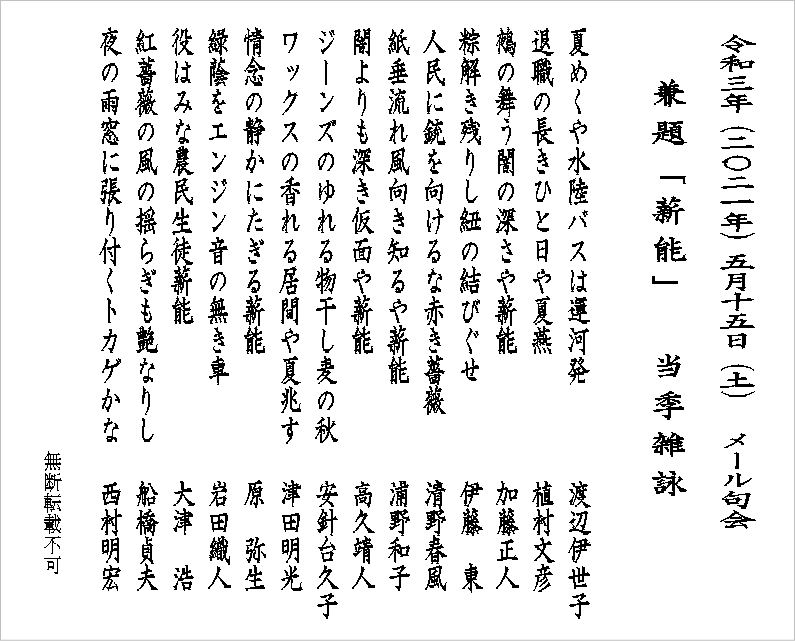 令和三年（二〇二一年）五月十五日（土）　メール句会
兼題「薪能」　当季雑詠
夏めくや水陸バスは運河発　渡辺伊世子
退職の長きひと日や夏燕　植村文彦
鵺の舞う闇の深さや薪能　加藤正人
粽解き残りし紐の結びぐせ　伊藤　東
人民に銃を向けるな赤き薔薇　清野春風
紙垂流れ風向き知るや薪能　浦野和子
闇よりも深き仮面や薪能　高久靖人
ジーンズのゆれる物干し麦の秋　安針台久子
ワックスの香れる居間や夏兆す　津田明光
情念の静かにたぎる薪能　原　弥生
緑蔭をエンジン音の無き車　岩田織人
役はみな農民生徒薪能　大津　浩
紅薔薇の風の揺らぎも艶なりし　船橋貞夫
夜の雨窓に張り付くトカゲかな　西村明宏
無断転載不可